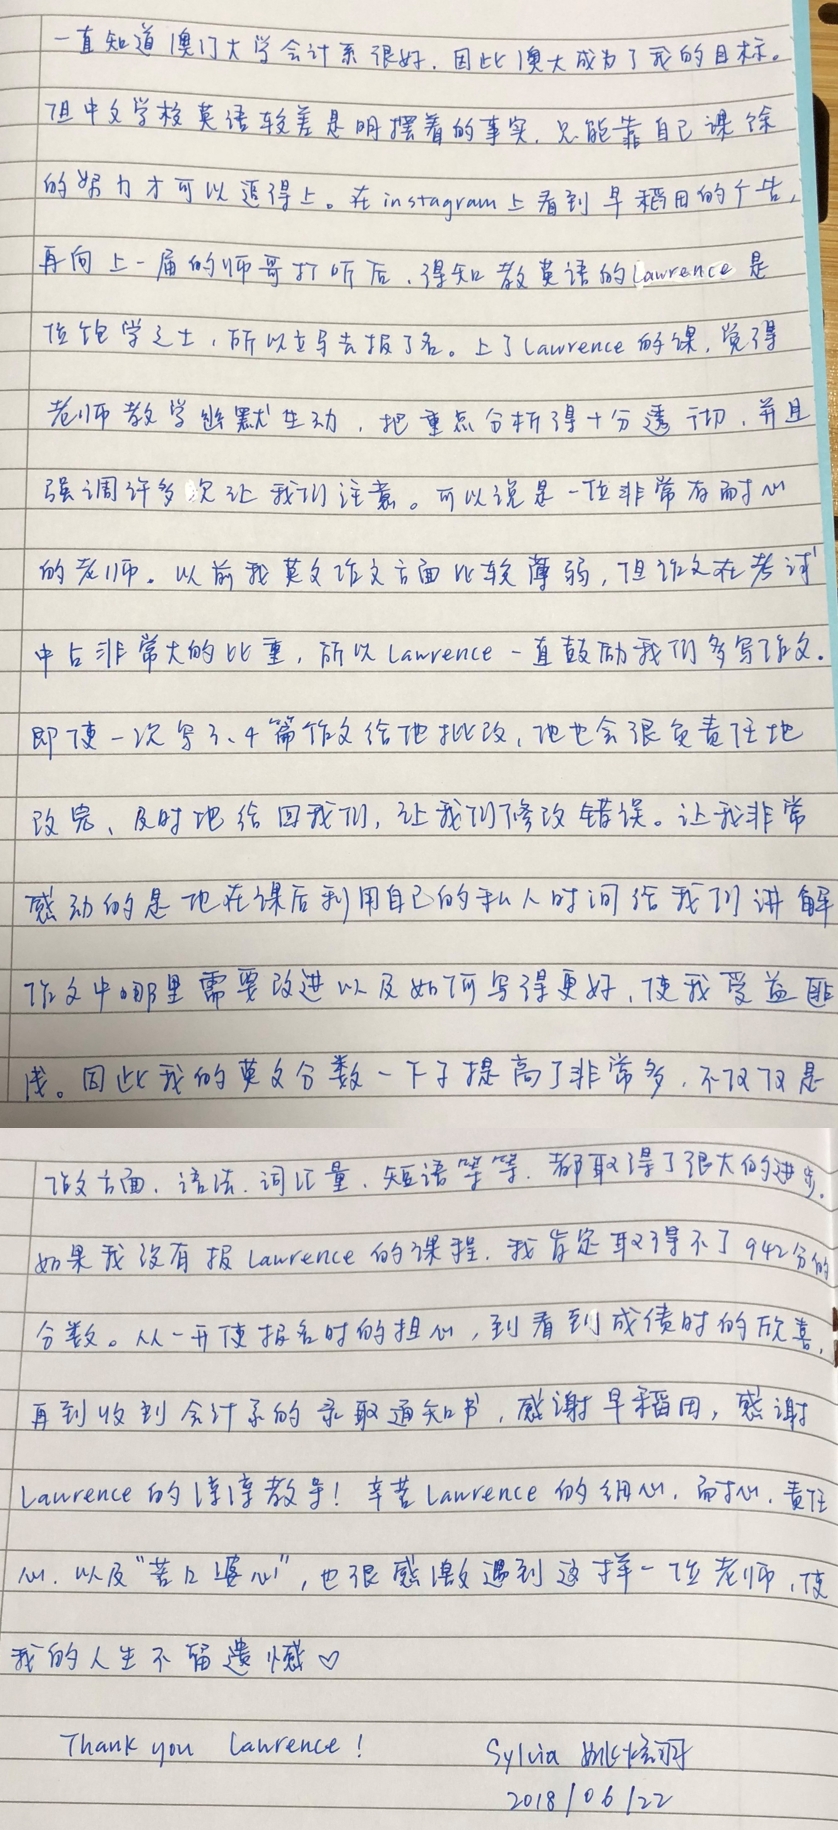 一直知道澳门大学会计系很好，因此澳大成为了我的目标。
但中文学校英语较差是明摆着的事实，只能靠自己课馀
的努力才可以追得上。在instagram上看到早稻田的广告，
再向上一届的师哥打听后，得知教英语的Lawrence是
位饱学之士，所以立马去报了名。上了Lawrence的课，觉得
老师教学幽默生动，把重点分析得十分透彻，并且
强调许多次让我们注意。可以说是一位非常有耐心
的老师。以前我英文作文方面比较薄弱，但作文在考试
中占非常大的比重，所以Lawrence一直鼓励我们多写作文。
即使一次写3、4篇作文给他批改，他也会很负责任地
改完、及时地给回我们，让我们修改错误。让我非常
感动的是他在课后利用自己的私人时间给我们讲解
作文中哪里需要改进以及如何写得更好，使我受益匪
浅。因此我的英文分数一下子提高了非常多，不仅仅是
作文方面，语法、词汇量、短语等等，都取得了很大的进步。
如果我没有报Lawrence的课程，我肯定取得不了942分的
分数。从一开使报名时的担心，到看到成绩时的欣喜，
再到收到会计系的录取通知书，感谢早稻田，感谢
Lawrence的谆谆教导！辛苦Lawrence的细心，耐心，责任
心，以及“苦口婆心”，也很感激遇到这样一位老师，使
我的人生不留遗憾♡
Thank you Lawrence!
Sylvia 姚
2018/06/22